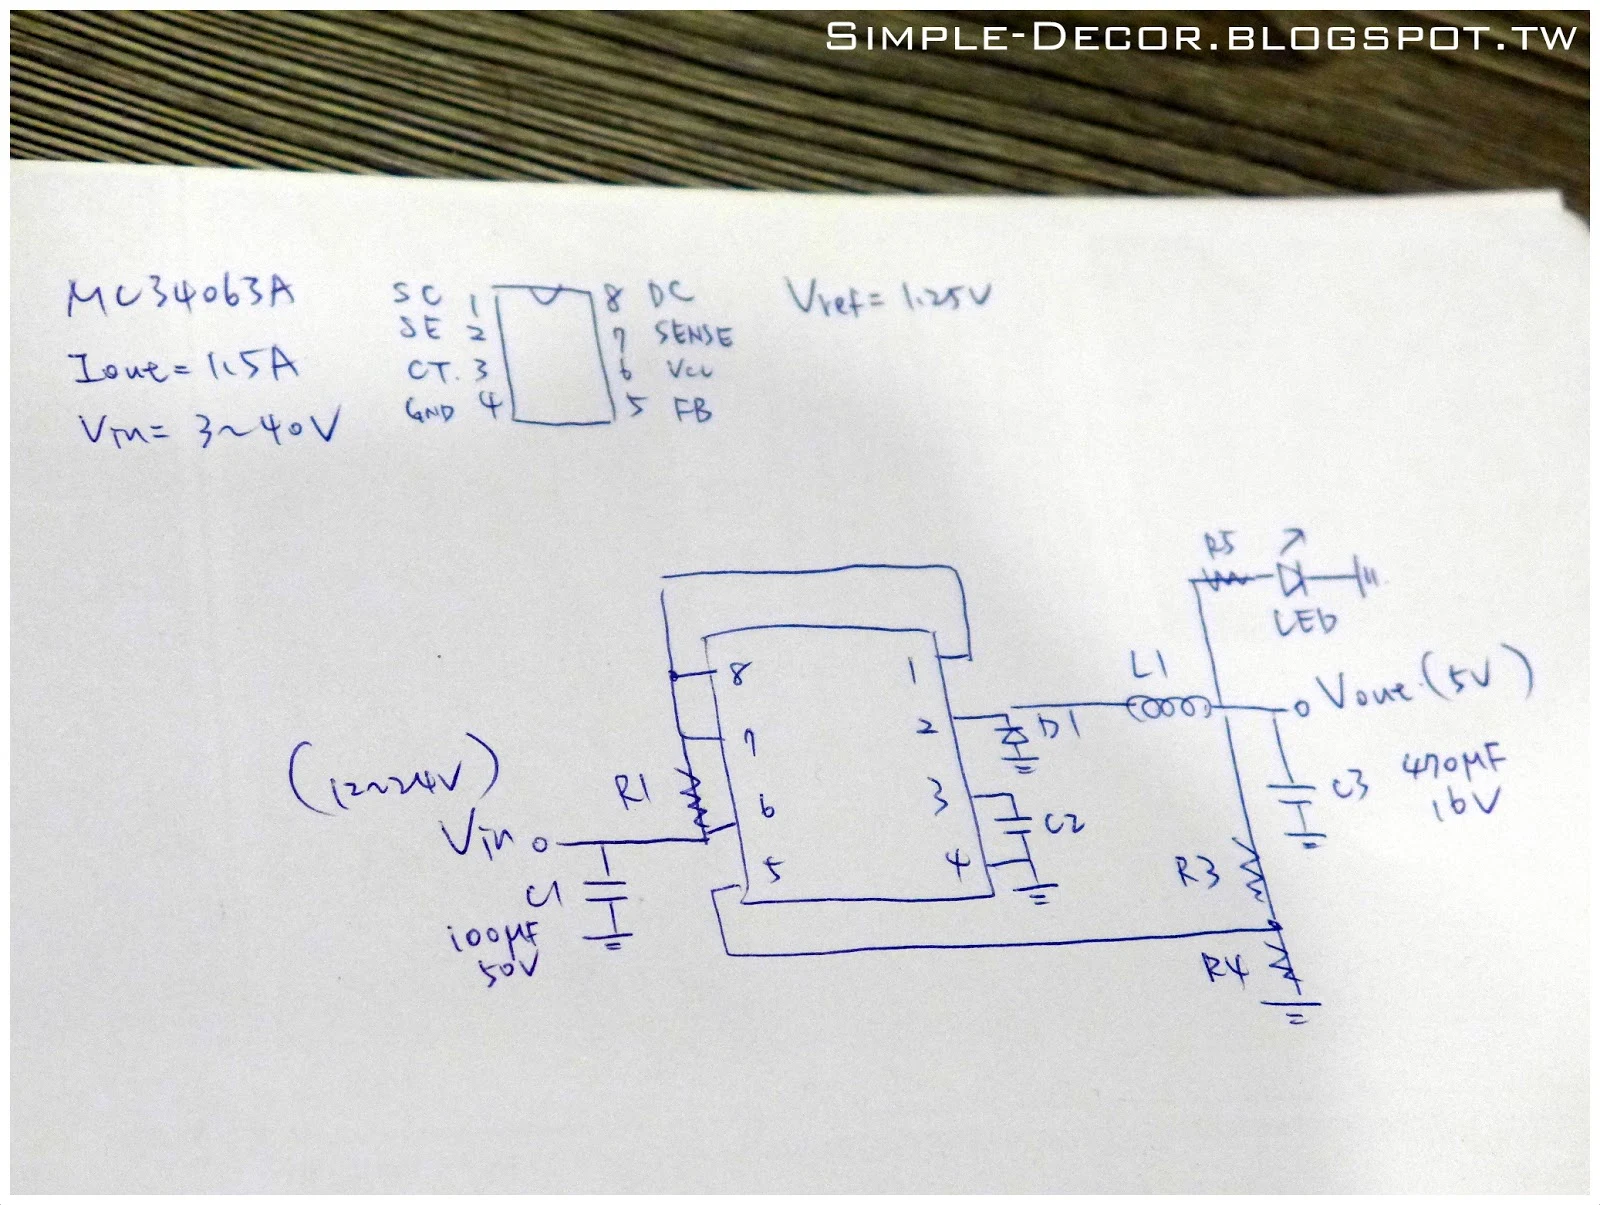 SIMPLE-DECOR.BLOGSPOT.TW
MC34063A
Iout = 1.5A
Vin = 3~40V
SC 1 8 DC
SE 2 7 SENSE
CT. 3 6 Vcc
GND 4 5 FB
Vref = 1.25V
R5
LED
8 1
L1
Vout (5V)
7 2 D1
(12~24V)
R1
Vin
6 3 C2
C3 470µF
16V
5 4
C1
100µF
50V
R3
R4